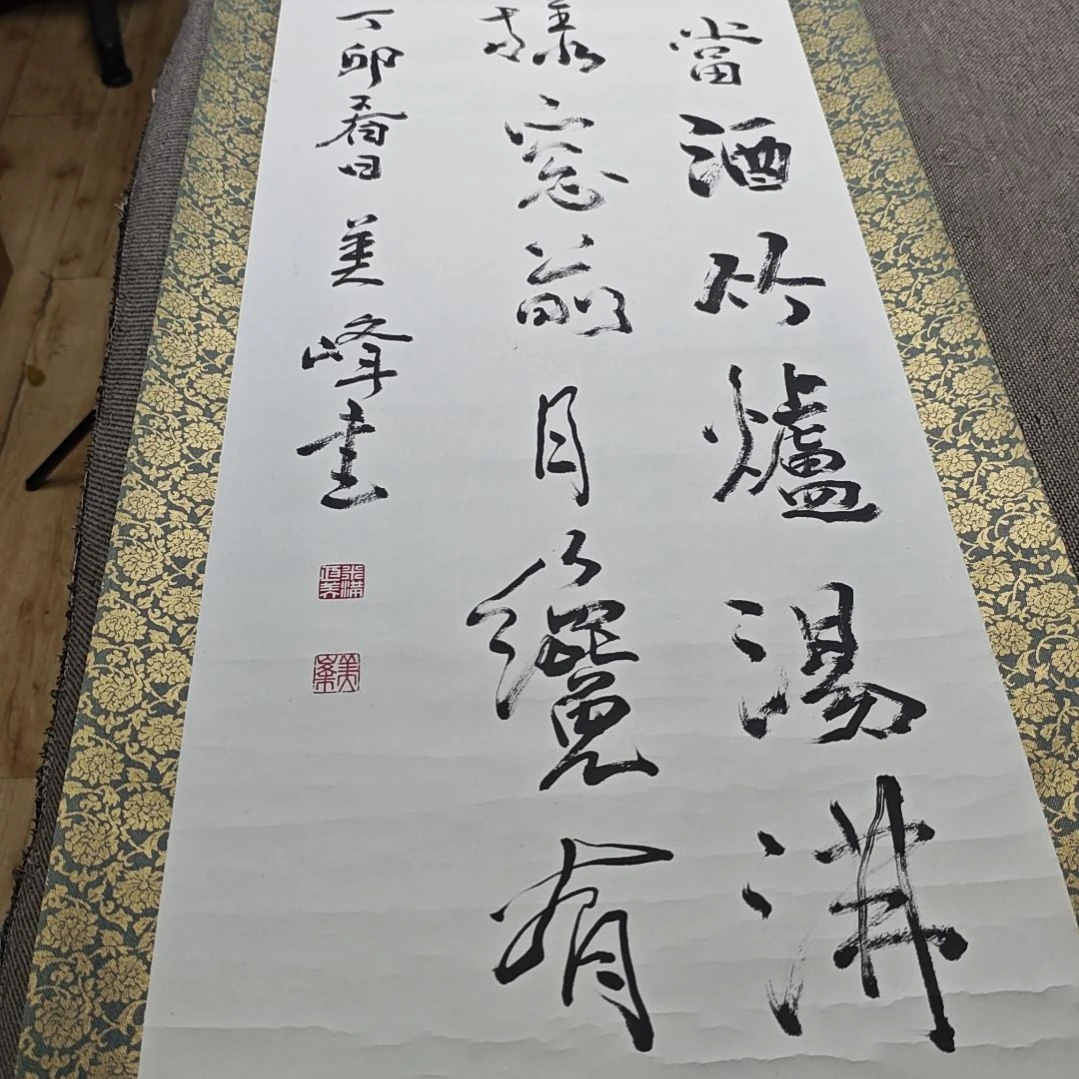 當酒竹爐湯沸
樣窓前月纔有
丁卯春日 美峰書
美峯